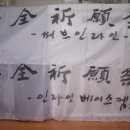 全祈願
-써브인라인-
全祈願祭
-인라인베이스캠